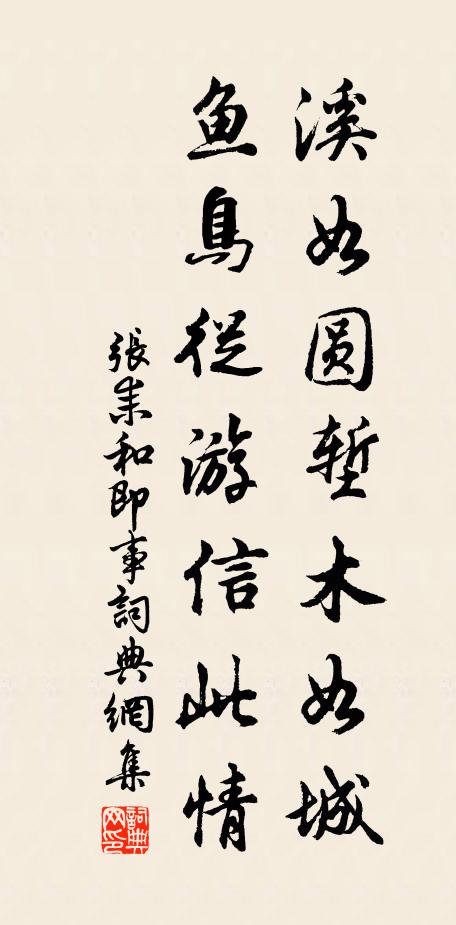 溪如圆堑木如城
鱼鸟從游信此情
張耒和即事詞典網集
詞典网印